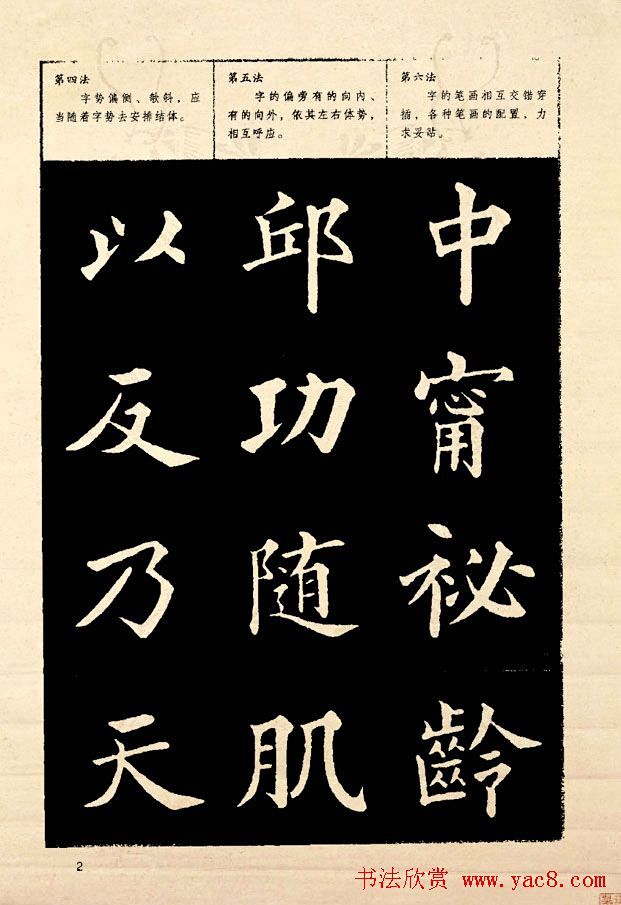 第四法
字势偏侧、欹斜，应
当随着字势去安排结体。
第五法
字的偏旁有的向内、
有的向外，依其左右体势，
相互呼应。
第六法
字的笔画相互交错穿
插，各种笔画的配置，力
求妥贴。
以反乃天
邱功随肌
中甯祕齡
2
书法欣赏 www.yac8.com